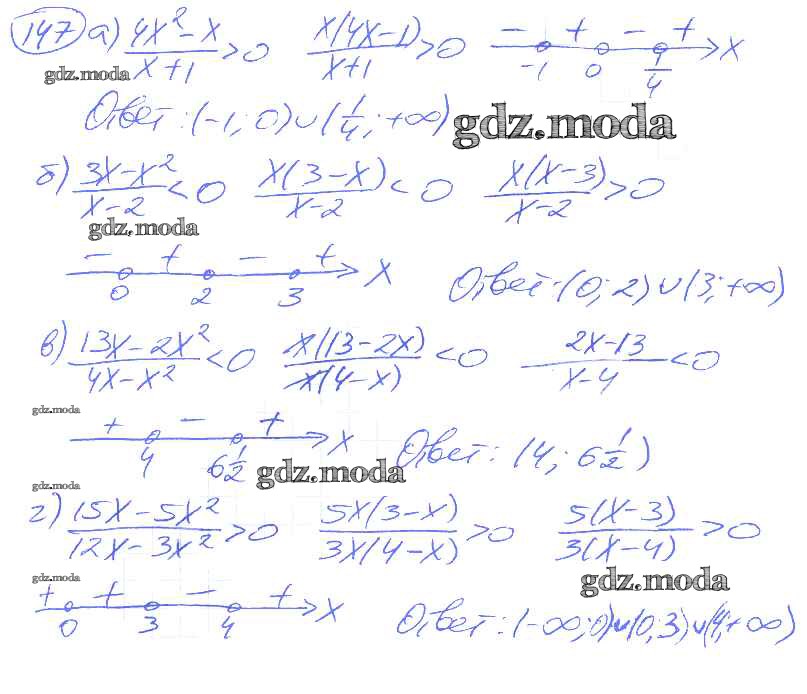 147 а) (4x² - x)/(x + 1) > 0   x(4x - 1)/(x + 1) > 0   - + - + x
gdz.moda
-1 0 1/4
Ответ: (-1; 0) ∪ (1/4; +∞)
gdz.moda
б) (3x - x²)/(x - 2) < 0   x(3 - x)/(x - 2) < 0   x(x - 3)/(x - 2) > 0
gdz.moda
- + - + x
0 2 3
Ответ: (0; 2) ∪ (3; +∞)
в) (13x - 2x²)/(4x - x²) < 0   x(13 - 2x)/x(4 - x) < 0   (2x - 13)/(x - 4) < 0
gdz.moda
+ - + x
4 6 1/2
Ответ: (4; 6 1/2)
gdz.moda
gdz.moda
г) (15x - 5x²)/(12x - 3x²) > 0   5x(3 - x)/3x(4 - x) > 0   5(x - 3)/3(x - 4) > 0
gdz.moda
gdz.moda
+ + - + x
0 3 4
Ответ: (-∞; 0) ∪ (0; 3) ∪ (4; +∞)